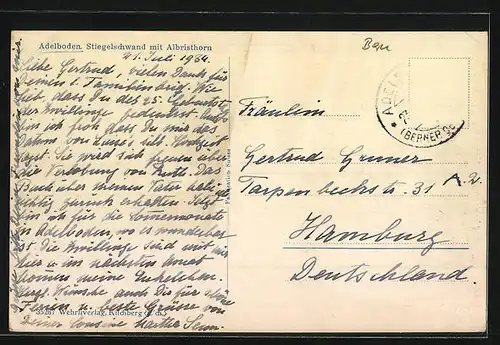 Adelboden. Stiegelschwand mit Albristhorn
21. Juli 1964.
Liebe Gertrud, vielen Dank für
Deinen l. Familienbrief. Wie
lieb, dass Du des 25. Geburtst.
der Zwillinge gedenkst. Auch
bin ich froh dass Du mir das
Datum von silb. Hochzeit
sagst. Sie wird sich freuen über
die Verlobung von Das
Buch über Deinen Vater
zurück erhalten. Jetzt
bin ich für die Sommermonate
in Adelboden, wo es wunderbar
ist. Die Zwillinge sind mit mir
hier u. im nächsten Monat
kommen meine Enkelchen.
Wünsche auch Dir für schöne
Ferien u. beste Grüsse von
Deiner Cousine Martha
35267 Wehrliverlag, Kilchberg
Bern
ADELBODEN
(BERNER O
Fräulein
Gertrud Gruner
Tarpenbeckstr. 31 A. 2.
Hamburg
Deutschland.